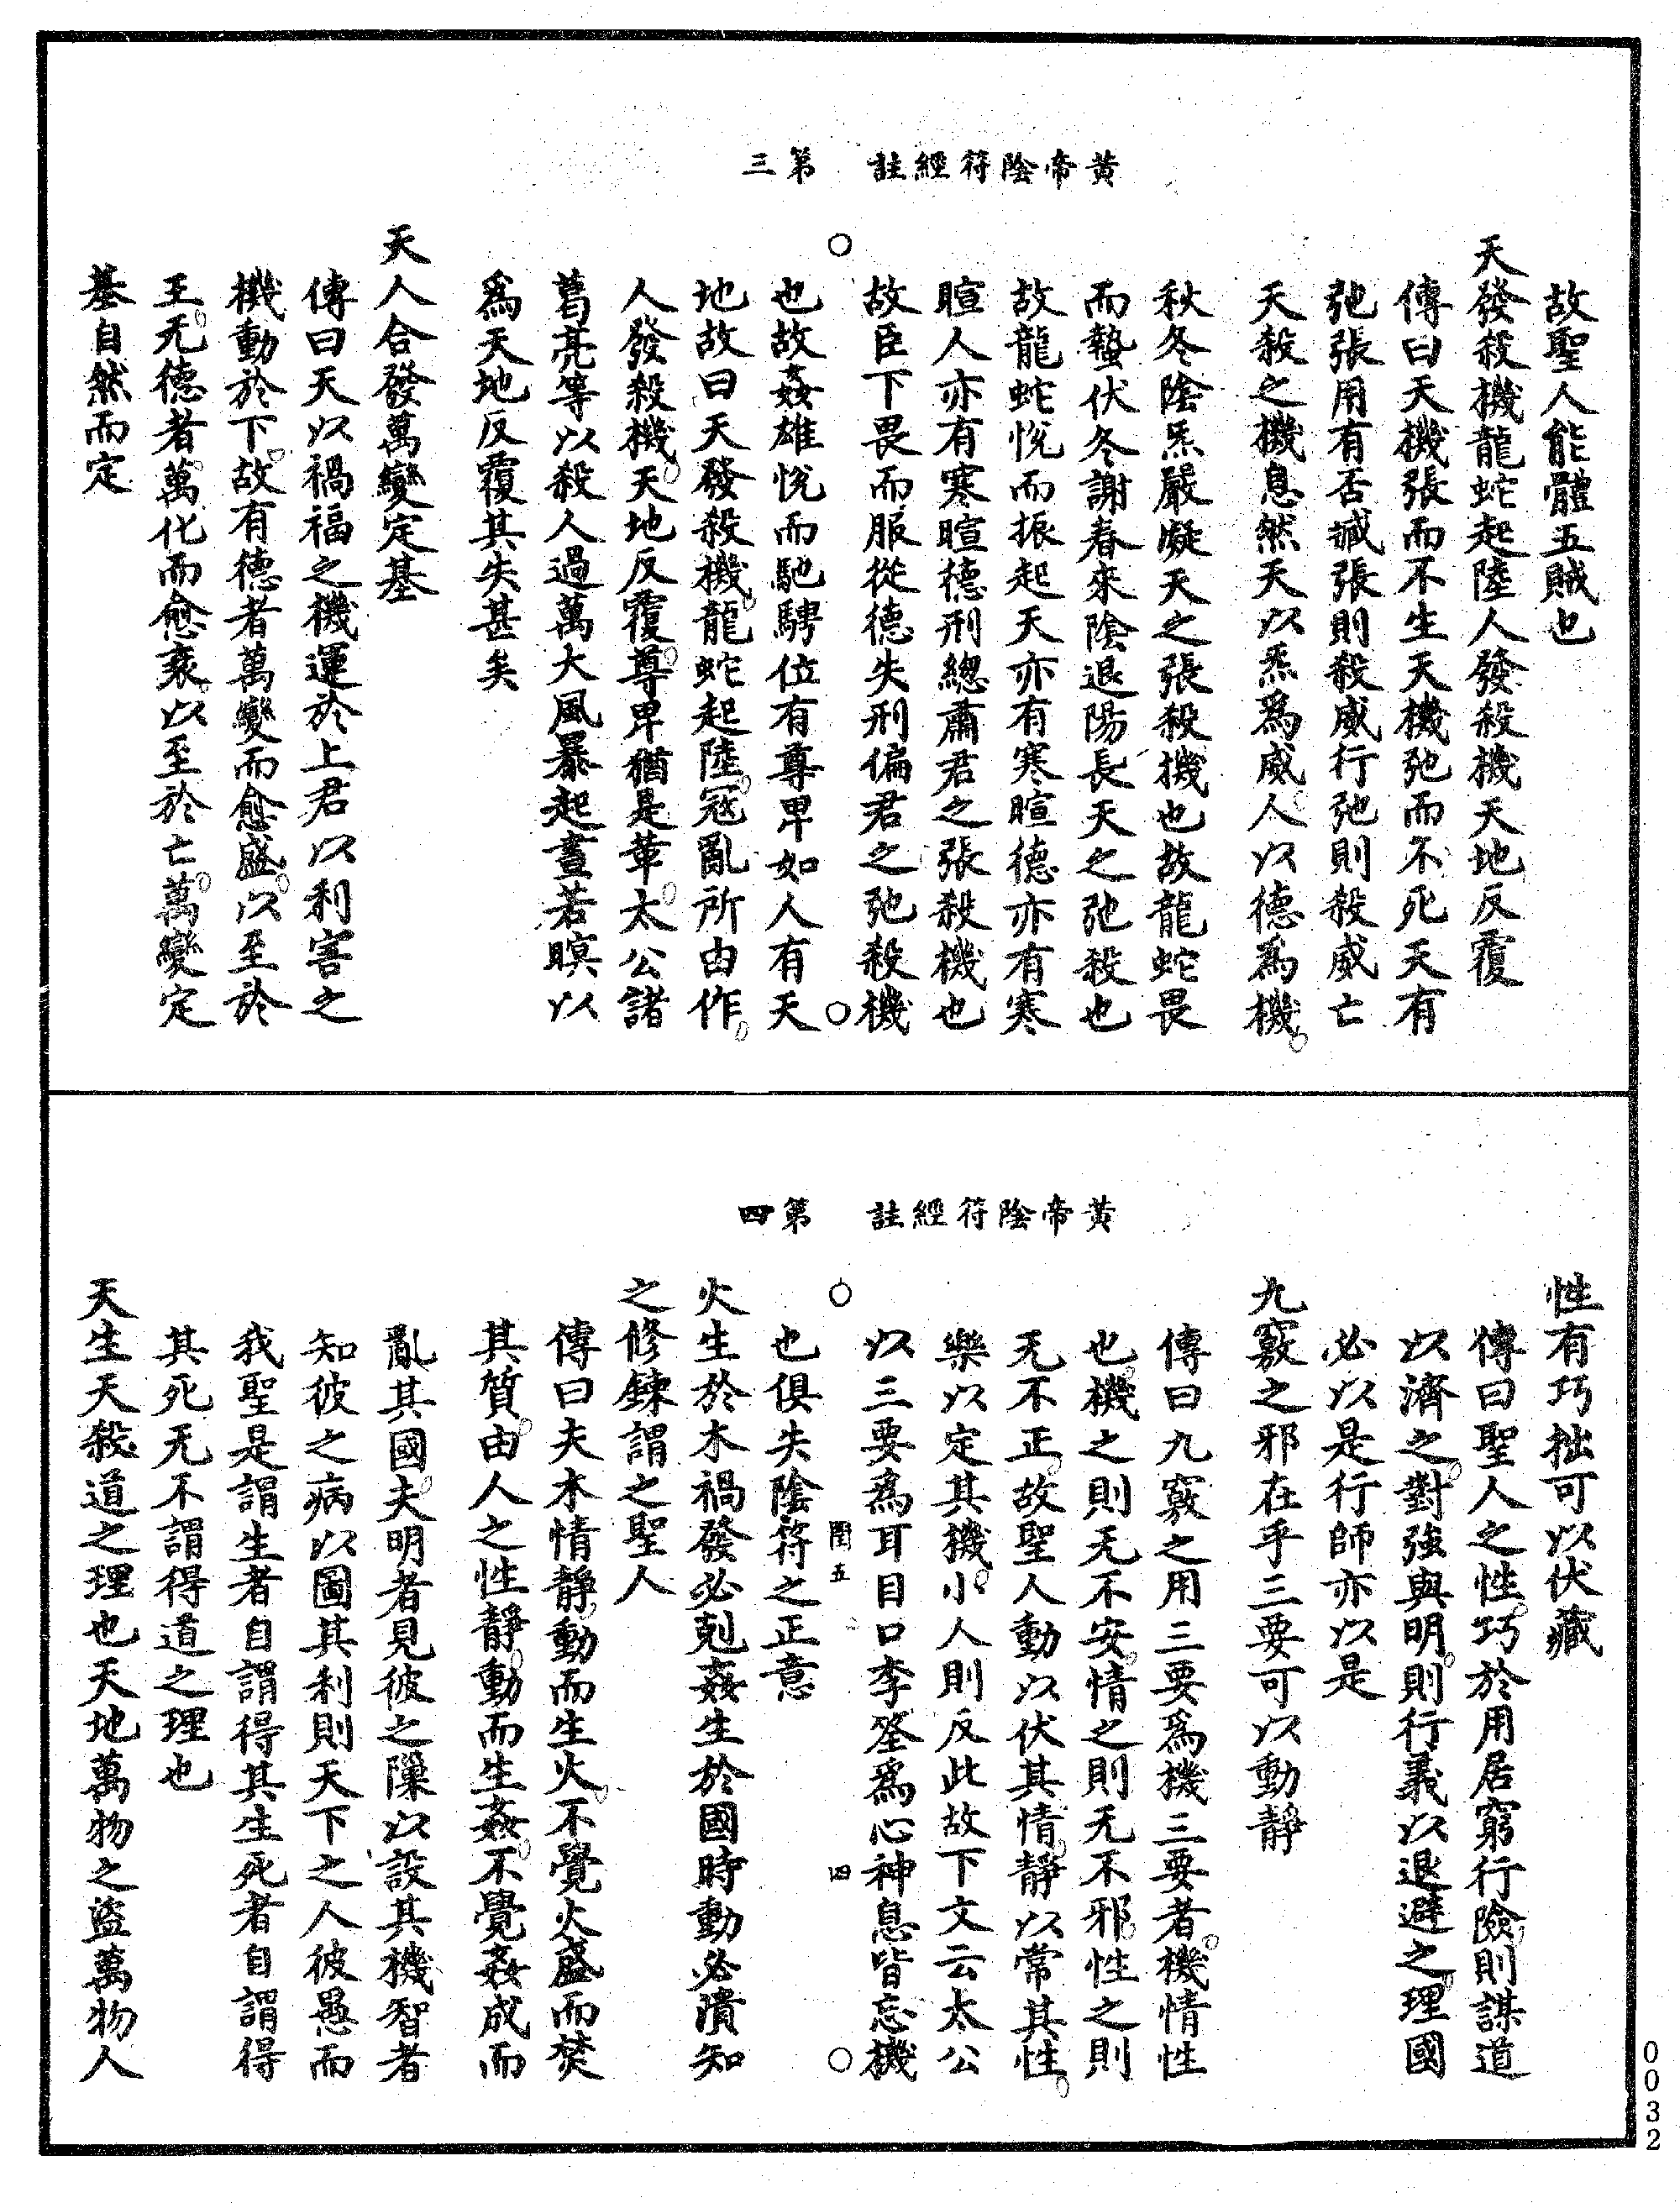 黃帝陰符經註　第三
故聖人能體五賊也
天發殺機龍蛇起陸人發殺機天地反覆
傳曰天機張而不生天機弛而不死天有
弛張用有否臧張則殺威行弛則殺威亡
天殺之機息然天以炁爲威人以德爲機
秋冬陰炁嚴凝天之張殺機也故龍蛇畏
而蟄伏冬謝春來陰退陽長天之弛殺也
故龍蛇悅而振起天亦有寒暄德亦有寒
暄人亦有寒暄德刑緫肅君之張殺機也
故臣下畏而服從德失刑偏君之弛殺機
也故姦雄悅而馳騁位有尊卑如人有天
地故曰天發殺機龍蛇起陸冦亂所由作
人發殺機天地反覆尊卑猶是革太公諸
葛亮等以殺人過萬大風暴起晝若暝以
爲天地反覆其失甚矣
天人合發萬變定基
傳曰天以禍福之機運於上君以利害之
機動於下故有德者萬變而愈盛以至於
王无德者萬化而愈衰以至於亡萬變定
基自然而定
黃帝陰符經註　第四
性有巧拙可以伏藏
傳曰聖人之性巧於用居窮行險則謀道
以濟之對強與明則行義以退避之理國
必以是行師亦以是
九竅之邪在乎三要可以動靜
傳曰九竅之用三要爲機三要者機情性
也機之則无不安情之則无不邪性之則
无不正故聖人動以伏其情靜以常其性
樂以定其機小人則反此故下文云太公
以三要爲耳目口李筌爲心神息皆忘機
也俱失陰符之正意
閏五　四
火生於木禍發必剋姦生於國時動必潰知
之修鍊謂之聖人
傳曰夫木情靜動而生火不覺火盛而焚
其質由人之性靜動而生姦不覺姦成而
亂其國夫明者見彼之隟以設其機智者
知彼之病以圖其利則天下之人彼愚而
我聖是謂生者自謂得其生死者自謂得
其死无不謂得道之理也
天生天殺道之理也天地萬物之盜萬物人
0032